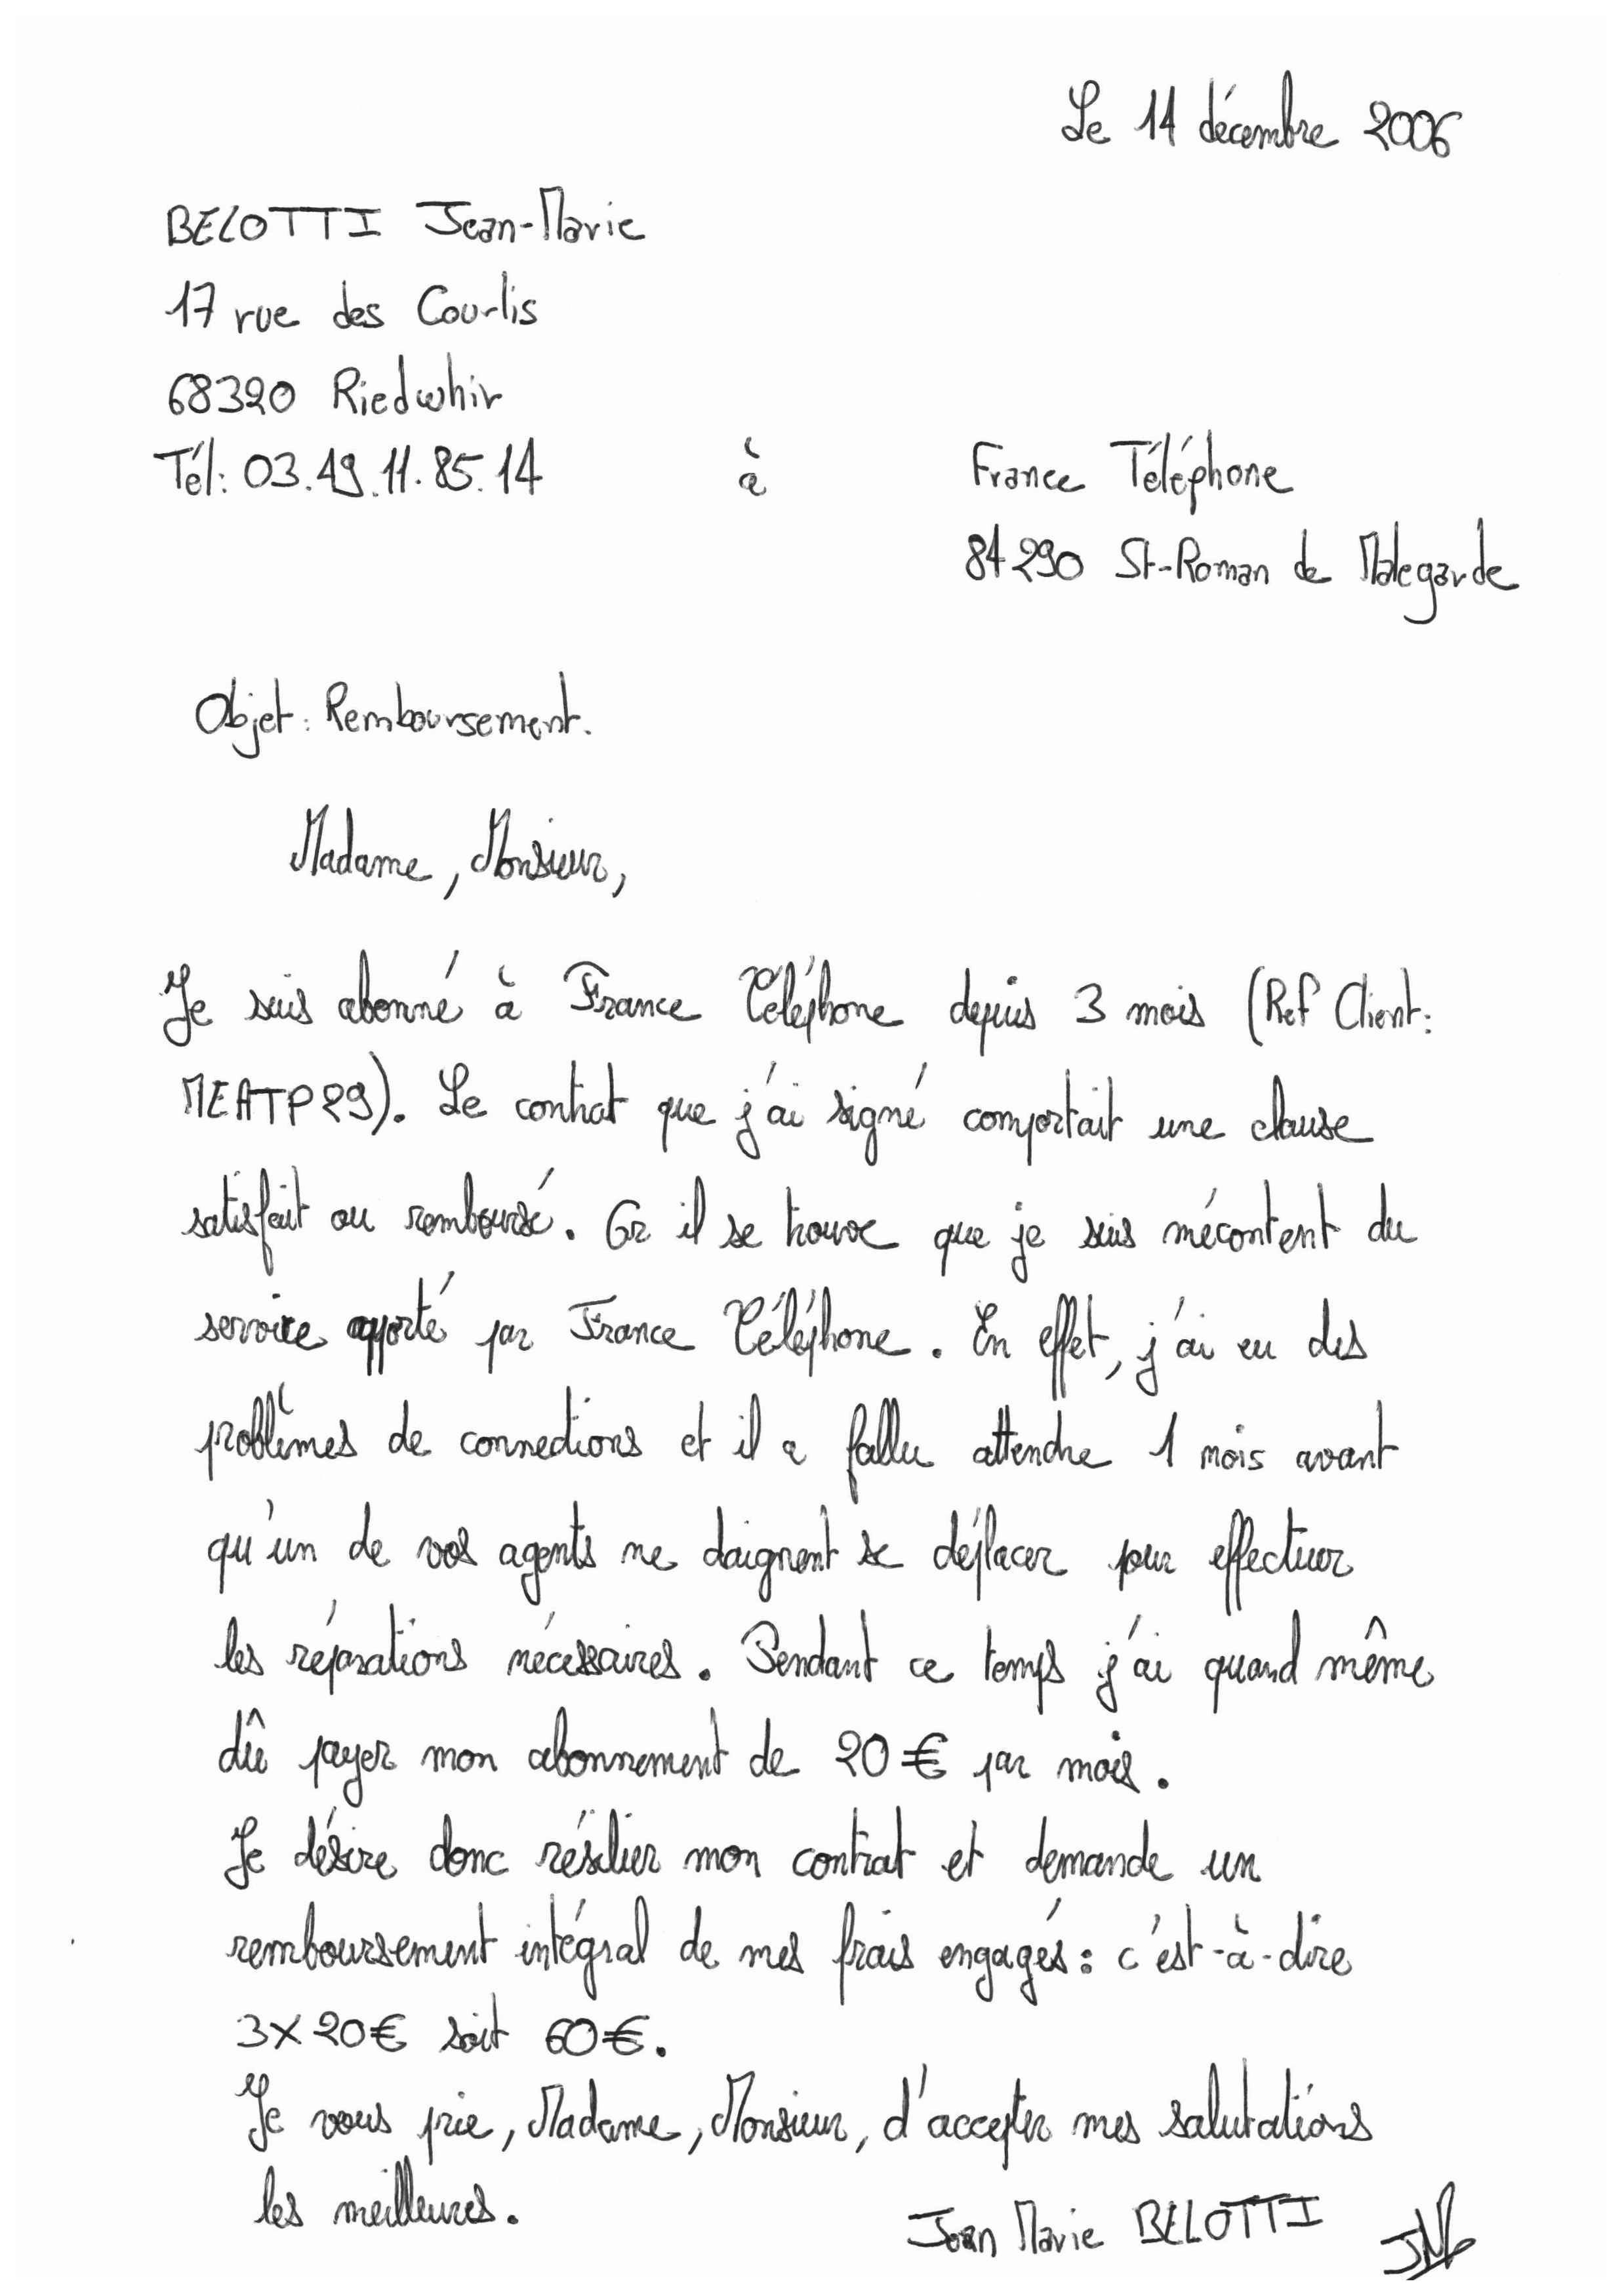 Le 11 décembre 2006
BELOTTI Jean-Marie
17 rue des Courlis
68320 Riedwhir
Tél: 03.49.11.85.14
à
France Téléphone
84290 St-Roman de Malegarde
Objet: Remboursement.
Madame, Monsieur,
Je suis abonné à France Téléphone depuis 3 mois (Ref Client:
MEATP29). Le contrat que j'ai signé comportait une clause
satisfait ou remboursé. Or il se trouve que je suis mécontent du
service apporté par France Téléphone. En effet, j'ai eu des
problèmes de connections et il a fallu attendre 1 mois avant
qu'un de vos agents ne daignent se déplacer pour effectuer
les réparations nécessaires. Pendant ce temps j'ai quand même
dû payer mon abonnement de 20€ par mois.
Je désire donc résilier mon contrat et demande un
remboursement intégral de mes frais engagés: c'est-à-dire
3x20€ soit 60€.
Je vous prie, Madame, Monsieur, d'accepter mes salutations
les meilleures.
Jean Marie BELOTTI